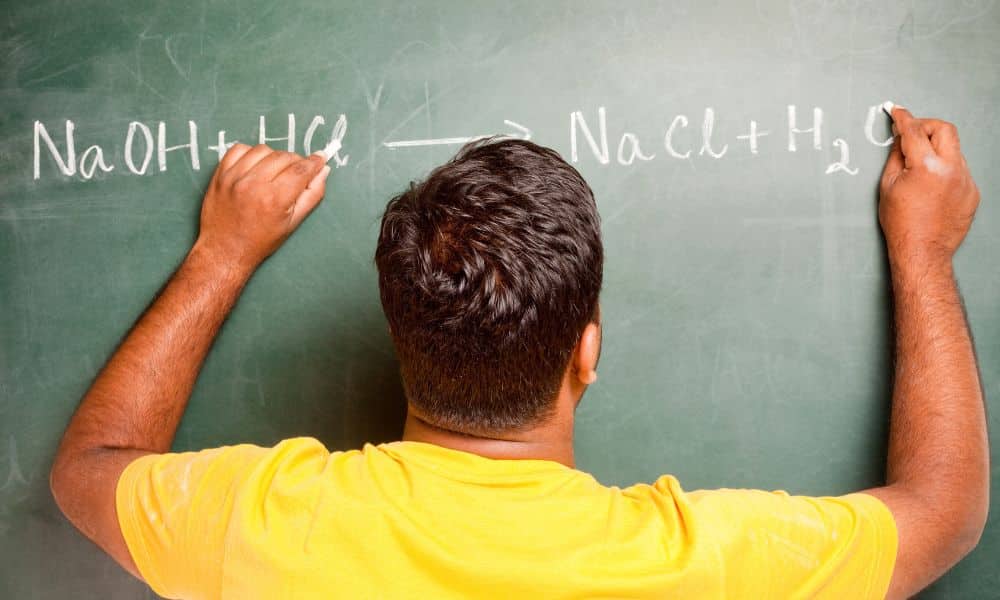 NaOH + HCl → NaCl + H₂O